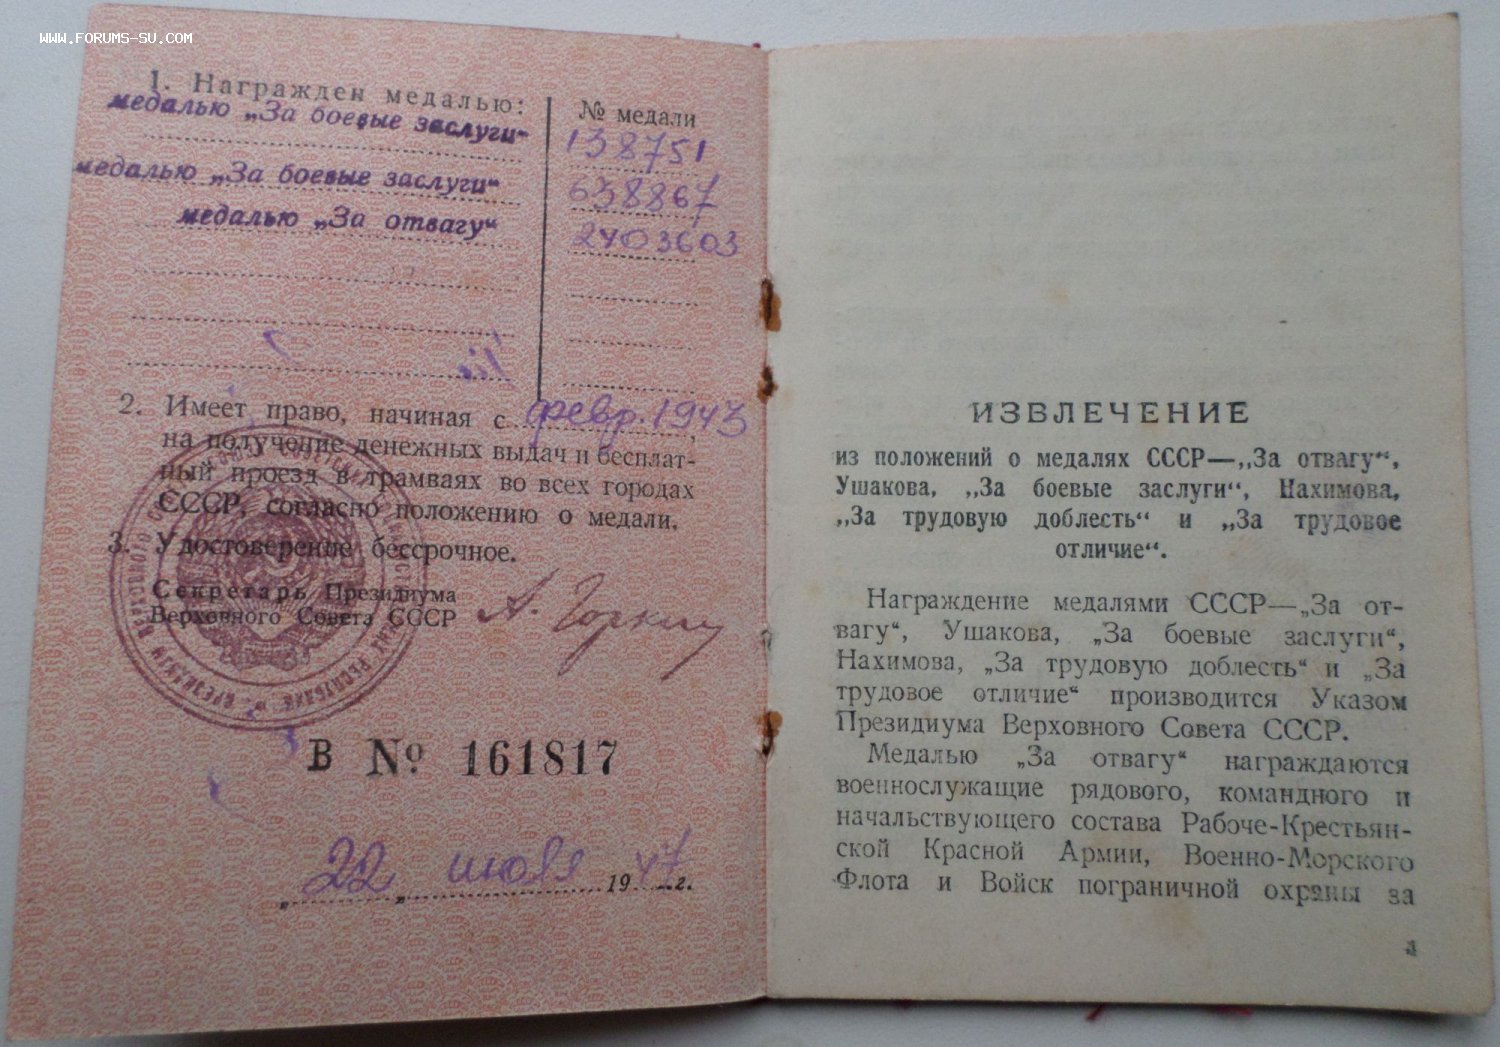 WWW.FORUMS-SU.COM
1. Награжден медалью:
№ медали
медалью „За боевые заслуги“
138751
медалью „За боевые заслуги“
638867
медалью „За отвагу“
2403603
2. Имеет право, начиная с февр. 1943,
на получение денежных выдач и бесплат-
ный проезд в трамваях во всех городах
СССР, согласно положению о медали.
3. Удостоверение бессрочное.
Секретарь Президиума
Верховного Совета СССР
А. Горкин
В № 161817
„22„ июля 1947г.
ИЗВЛЕЧЕНИЕ
из положений о медалях СССР—„За отвагу“,
Ушакова, „За боевые заслуги“, Нахимова,
„За трудовую доблесть“ и „За трудовое
отличие“.
Награждение медалями СССР—„За от-
вагу“, Ушакова, „За боевые заслуги“,
Нахимова, „За трудовую доблесть“ и „За
трудовое отличие“ производится Указом
Президиума Верховного Совета СССР.
Медалью „За отвагу“ награждаются
военнослужащие рядового, командного и
начальствующего состава Рабоче-Крестьян-
ской Красной Армии, Военно-Морского
Флота и Войск пограничной охраны за